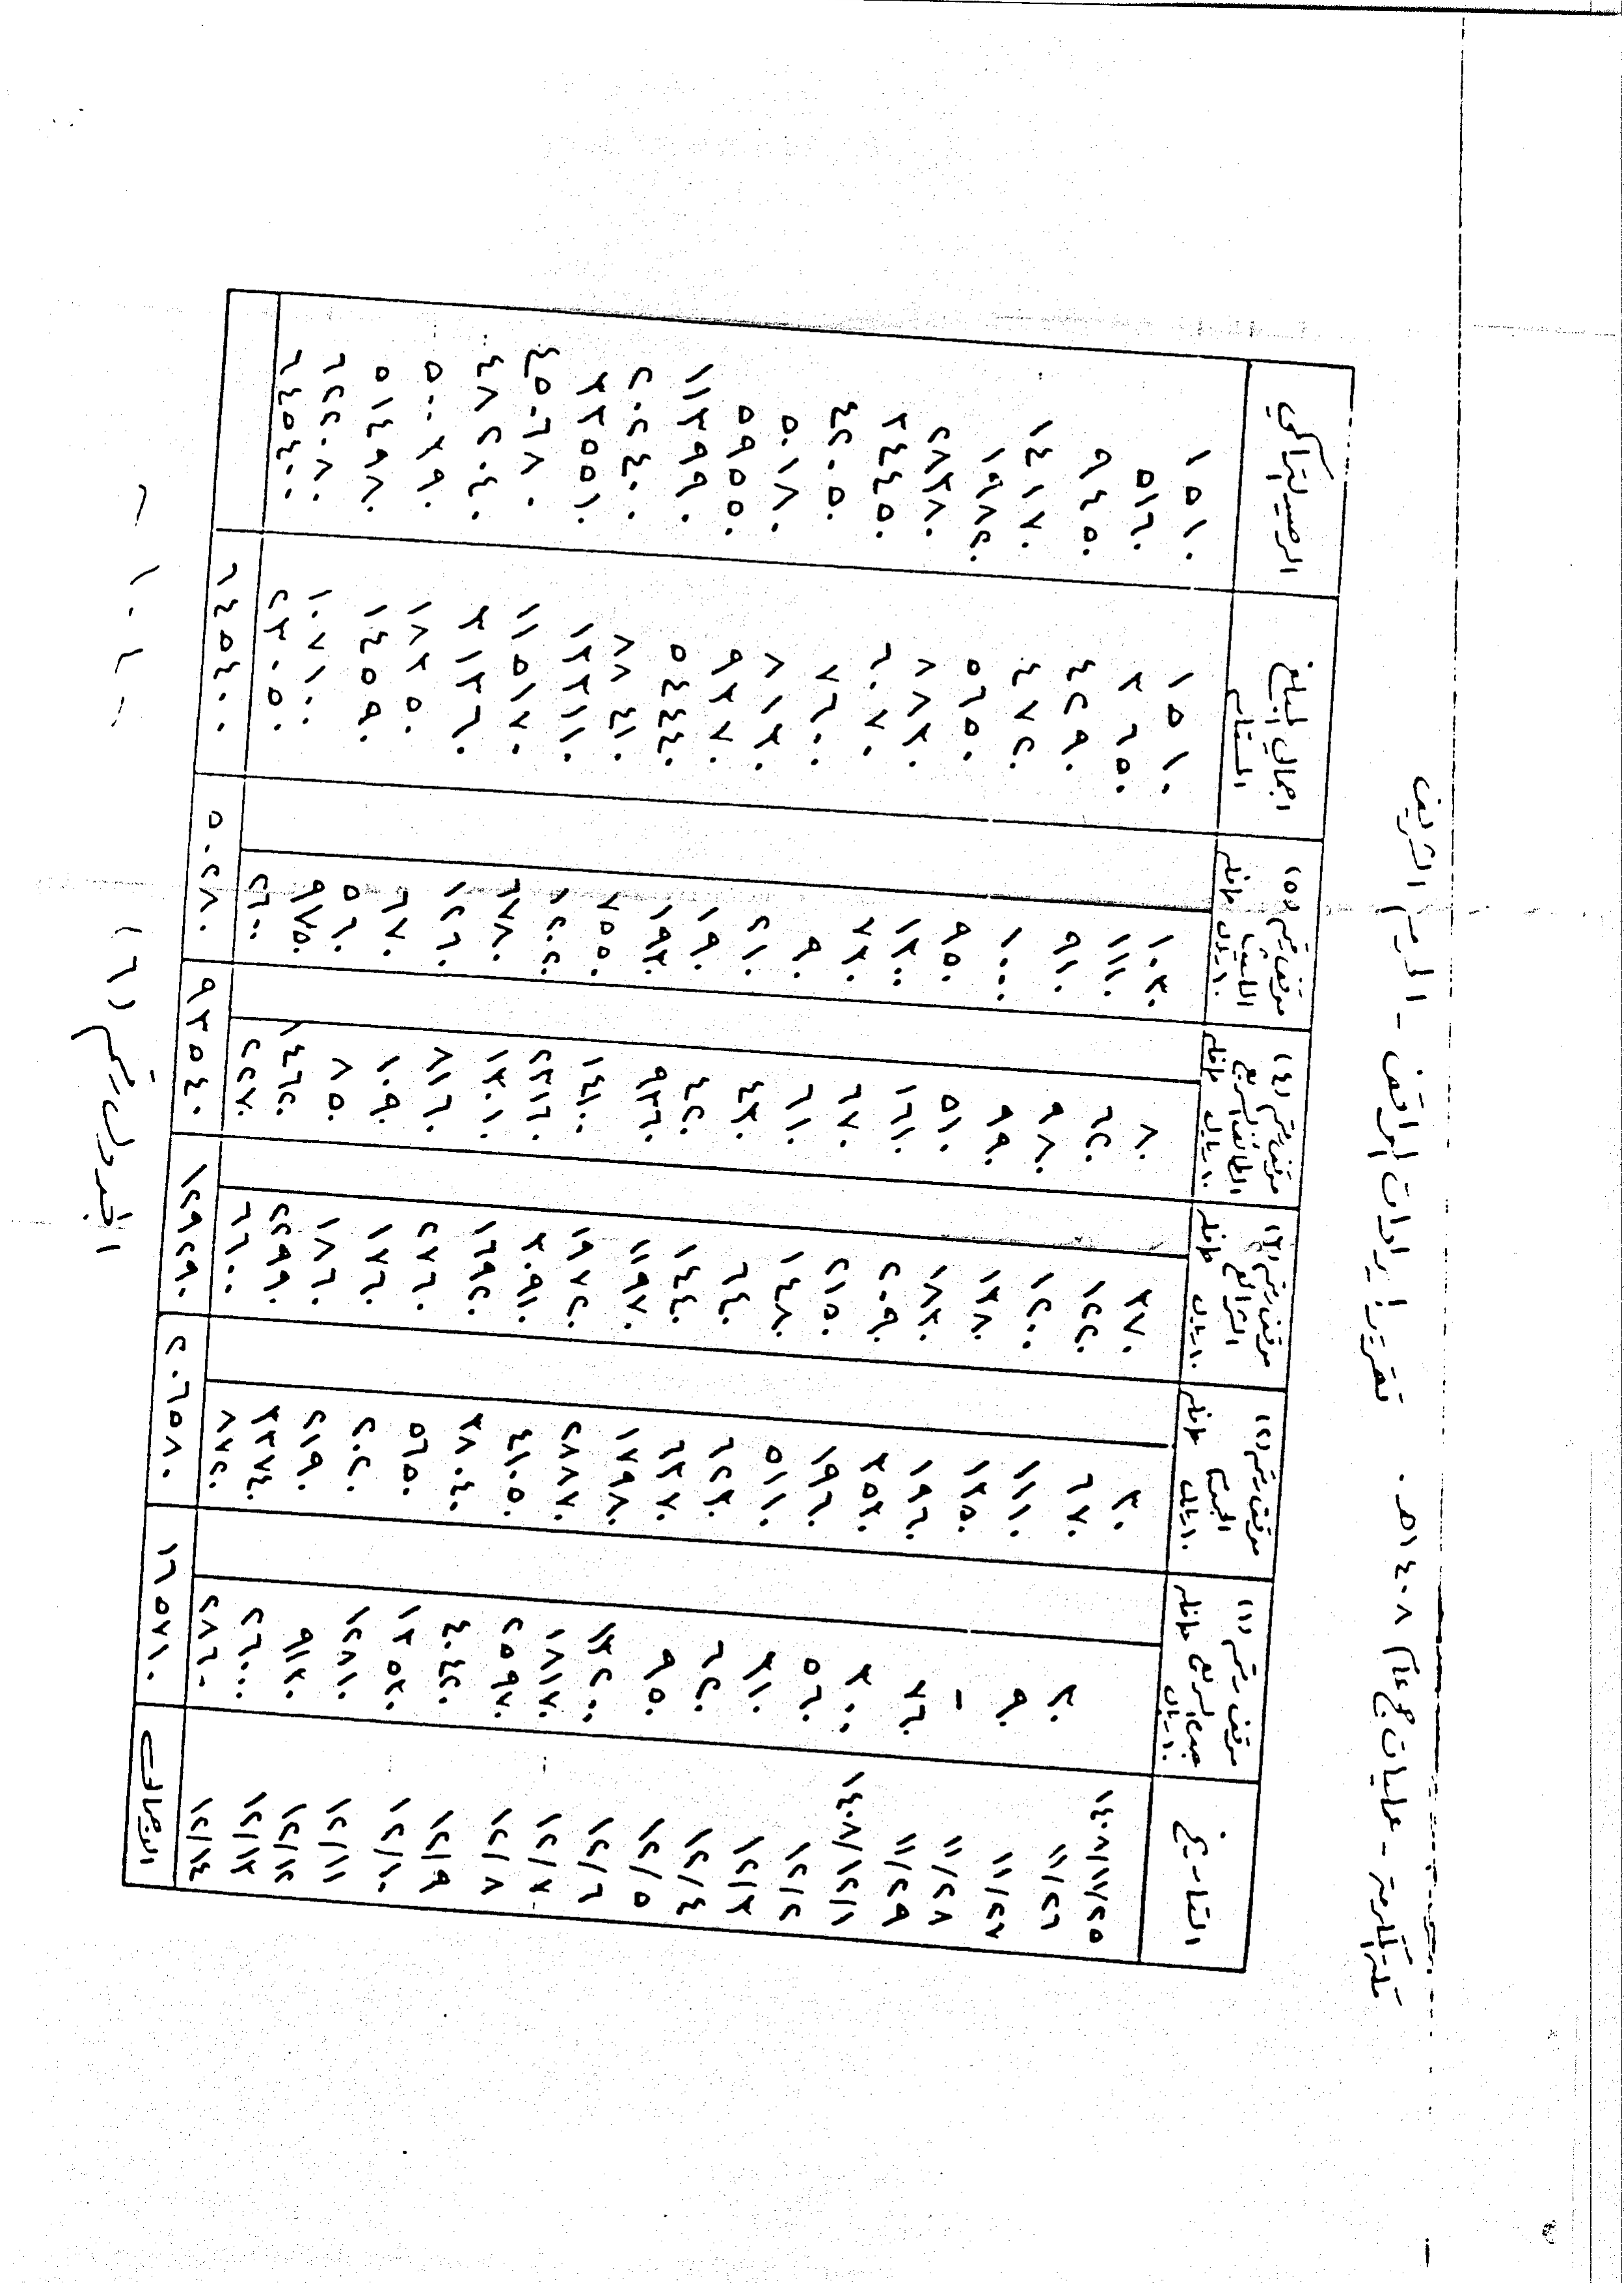 مكة المكرمة - عمليات حج عام ١٤٠٨هـ . تقرير إيرادات المواقف - الحرم الشريف
التاريخ موقف رقم (١) جدة السريع ١٠ ريال حافلة موقف رقم (٢) الجموم ١٠ ريال حافلة موقف رقم (٣) الشرائع ١٠ ريال حافلة موقف رقم (٤) الطائف السريع ١٠ ريال حافلة موقف رقم (٥) الليث ١٠ ريال حافلة اجمالي المبلغ المستلم الرصيد التراكمي
١٤٠٨/١١/٢٥ ٣٠ ٣٧٠ ٨٠ ١٠٣٠ ١٥١٠ ١٥١٠
١١/٢٦ ٣٠ ٦٧٠ ١٢٢٠ ٦٢٠ ١١١٠ ٣٦٥٠ ٥١٦٠
١١/٢٧ ٩٠ ١١١٠ ١٢٠٠ ٩٨٠ ٩١٠ ٤٢٩٠ ٩٤٥٠
١١/٢٨ - ١٣٥٠ ١٣٨٠ ٩٩٠ ١٠٠٠ ٤٧٢٠ ١٤١٧٠
١١/٢٩ ٣٦٠ ١٩٦٠ ١٨٣٠ ٥١٠ ٩٥٠ ٥٦٥٠ ١٩٨٢٠
١٤٠٨/١٢/١ ٣٠٠ ٣٥٣٠ ٢٠٩٠ ١٦١٠ ١٣٠٠ ٨٨٣٠ ٢٨٣٨٠
١٢/٢ ٥٦٠ ١٩٦٠ ٢١٥٠ ٦٧٠ ٧٣٠ ٦٠٧٠ ٣٤٤٥٠
١٢/٣ ٣١٠ ٥١١٠ ١٤٨٠ ٦١٠ ٩٠ ٧٦٠٠ ٤٢٠٥٠
١٢/٤ ٦٢٠ ٦٢٣٠ ٦٤٠ ٤٣٠ ٢١٠ ٨١٣٠ ٥٠١٨٠
١٢/٥ ٩٥٠ ٦٣٧٠ ١٤٤٠ ٤٢٠ ١٩٠ ٩٣٧٠ ٥٩٥٥٠
١٢/٦ ١٣٢٠٠ ١٧٩٨٠ ١١٩٧٠ ٩٣٦٠ ١٩٣٠ ٥٤٤٤٠ ١١٣٩٩٠
١٢/٧ ١٨١٧٠ ٢٨٨٧٠ ١٩٧٢٠ ١٤١٠٠ ٧٥٥٠ ٨٨٤١٠ ٢٠٢٤٠٠
١٢/٨ ٢٥٩٧٠ ٤١٠٥٠ ٣٠٩١٠ ٢٣١٦٠ ١٢٠٢٠ ١٣٣١١٠ ٣٣٥٥١٠
١٢/٩ ٤٠٤٢٠ ٣٨٠٤٠ ١٦٩٢٠ ١٣٠١٠ ٦٧٨٠ ١١٥١٧٠ ٤٥٠٦٨٠
١٢/١٠ ١٣٥٣٠ ٥٦٥٠ ٢٧٦٠ ٨١٦٠ ١٢٦٠ ٣١٣٦٠ ٤٨٢٠٤٠
١٢/١١ ١٢٨١٠ ٢٠٢٠ ١٧٦٠ ١٠٩٠ ٦٧٠ ١٨٣٥٠ ٥٠٠٣٩٠
١٢/١٢ ٩١٣٠ ٢١٩٠ ١٨٦٠ ٨٥٠ ٥٦٠ ١٤٥٩٠ ٥١٤٩٨٠
١٢/١٣ ٢٦٠٠٠ ٣٣٧٤٠ ٢٢٩٩٠ ١٤٦٢٠ ٩٧٥٠ ١٠٧١٠٠ ٦٢٢٠٨٠
١٢/١٤ ٢٨٦٠ ٨٧٢٠ ٦٦٠٠ ٢٢٧٠ ٢٦٠٠ ٢٣٠٥٠ ٦٤٥٤٠٠
الاجمالي ١٦٥٧١٠ ٢٠٦٥٨٠ ١٢٩٢٩٠ ٩٣٥٤٠ ٥٠٢٨٠ ٦٤٥٤٠٠
الجدول رقم (٦)
- ١٠١ -